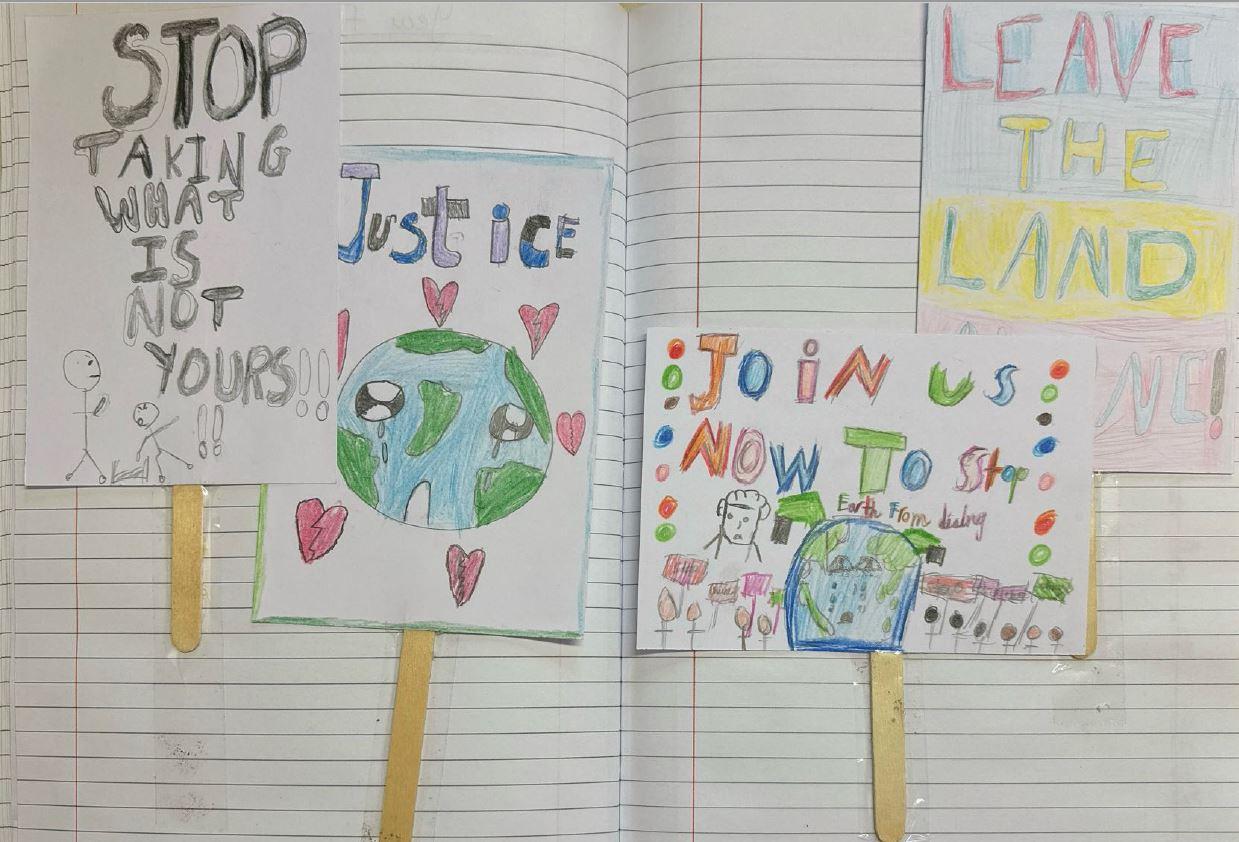 STOP
TAKING
WHAT
IS
NOT
YOURS!!
!!
Just icE
JOiN us
NOW TO Stop
Earth From dieing
LEAVE
THE
LAND